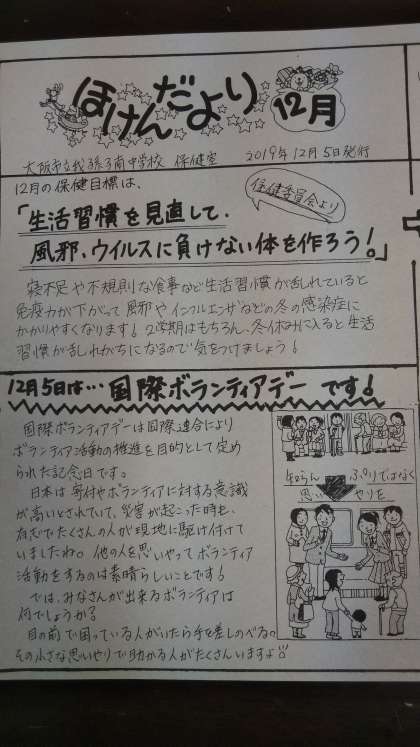 ほけんだより
12月
大阪市立我孫子南中学校 保健室
2019年12月5日発行
12月の保健目標は、
保健委員会より
「生活習慣を見直して、
風邪、ウイルスに負けない体を作ろう!」
寝不足や不規則な食事など生活習慣が乱れていると
免疫力が下がって風邪やインフルエンザなどの冬の感染症に
かかりやすくなります!2学期はもちろん、冬休みに入ると生活
習慣が乱れがちになるので気をつけましょう!
12月5日は…国際ボランティアデーです!
国際ボランティアデーは国際連合により
ボランティア活動の推進を目的として定め
られた記念日です。
日本は寄付やボランティアに対する意識
が高いとされていて、災害が起こった時も、
有志でたくさんの人が現地に駆け付けて
いましたね。他の人を思いやってボランティア
活動をするのは素晴らしいことです!
では、みなさんが出来るボランティアは
何でしょうか?
目の前で困っている人がいたら手を差しのべる。
その小さな思いやりで助かる人がたくさんいますよ!!
知らんぷりではなく
思いやりを